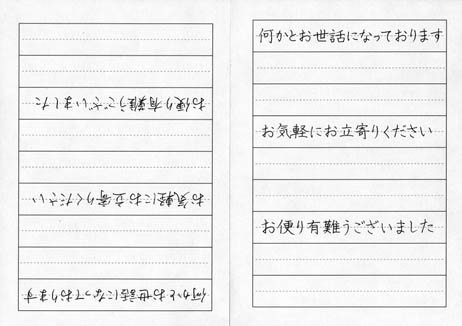 何かとお世話になっております
お気軽にお立寄りください
お便り有難うございました
何かとお世話になっております
お気軽にお立寄りください
お便り有難うございました